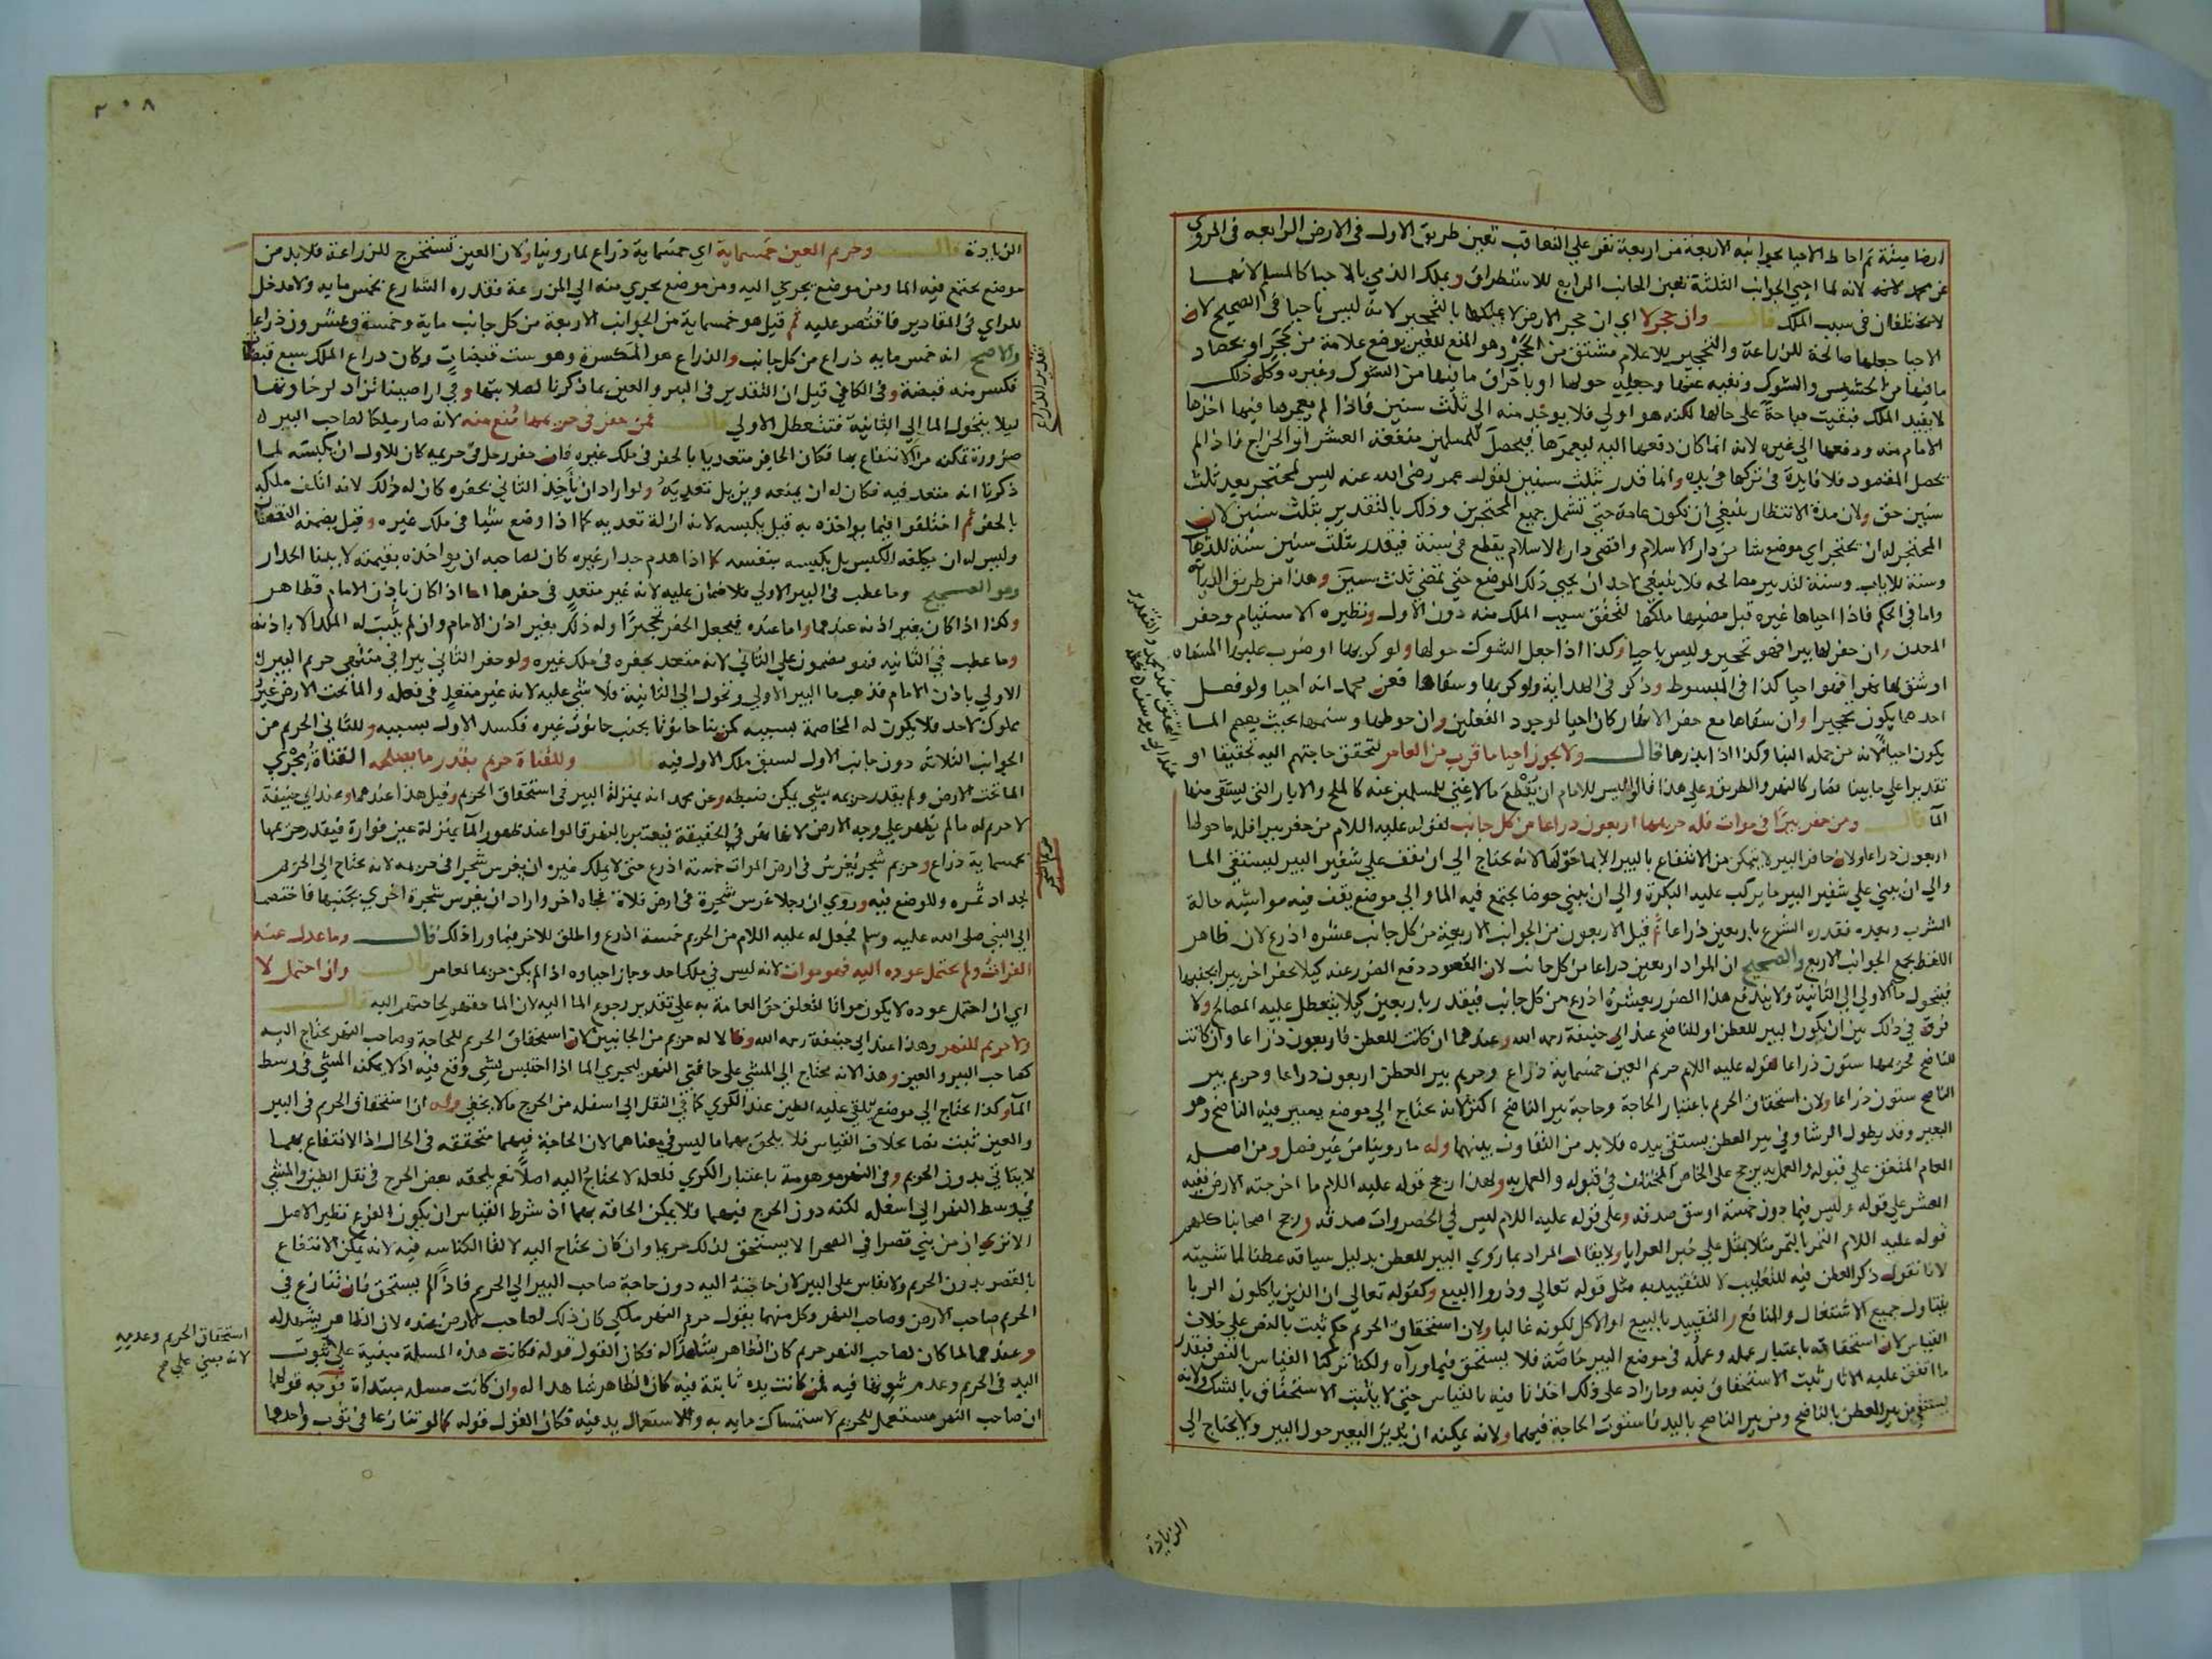 ارضا ميتة ثم احاط الاحيا بجوانبه الاربعة من اربعة نفر علي التعاقب تعين طريق الاول في الارض الرابعه في المروي
عن محمد لانه لما احيي الجوانب الثلثة تعين الجانب الرابع للاستطراق ويملك الذمي بالاحيا كالمسلم لانهما
لا يختلفان في سبب الملك قال وان حجر لا اي ان حجر الارض لا يملكها بالتحجير لانه ليس باحيا في الصحيح لان
الاحيا جعلها صالحة للزراعة والتحجير للاعلام مشتق من الحجر وهو المنع للغير بوضع علامة من حجر او بحصاد
ما فيها من الحشيش والشوك ونفيه عنها وجعله حولها او باحراق ما فيها من الشوك وغيره وكل ذلك
لا يفيد الملك فبقيت مباحة علي حالها لكنه هو اولي فلا يوخذ منه الي ثلث سنين فاذا لم يعمرها فيها اخذها
الامام منه ودفعها الي غيره لانه انما كان دفعها اليه ليعمرها فيحصل للمسلمين منفعة العشر او الخراج فاذا لم
يحصل المقصود فلا فايدة في تركها في يده وانما قدر بثلث سنين لقول عمر رضي الله عنه ليس لمحتجر بعد ثلث
سنين حق ولان مدة الانتظار ينبغي ان تكون عامة حتي تشمل جميع المحتجرين وذلك بالتقدير بثلث سنين لان
المحتجر له ان يحتجر اي موضع شا من دار الاسلام واقصي دار الاسلام يقطع في سنة فيقدر بثلث سنين سنة للذهاب
وسنة للاياب وسنة لتدبير مصالحه فلا ينبغي لاحد ان يحيي ذلك الموضع حتي تمضي ثلث سنين وهذا من طريق الديانة
واما في الحكم فاذا احياها غيره قبل مضيها ملكها لتحقق سبب الملك منه دون الاول ونظيره الاستيام وحفر
المعدن وان حفر لها بيرا فهو تحجير وليس باحيا وكذا اذا جعل الشوك حولها ولو كربها او ضرب عليها المسناة
او شق لها نهرا فهو احيا كذا في المبسوط وذكر في الهداية ولو كربها وسقاها فعن محمد انه احيا ولو فعل
احدهما يكون تحجيرا وان سقاها مع حفر الانهار كان احيا لوجود الفعلين وان حوطها وسنمها بحيث يعصم الما
يكون احيا لانه من جملة البنا وكذا اذا بذرها قال ولا يجوز احيا ما قرب من العامر لتحقق حاجتهم اليه تحقيقا او
تقديرا علي ما بينا فصار كالنهر والطريق وعلي هذا قالوا ليس للامام ان يقطع ما لا غني للمسلمين عنه كالملح والابار التي يستقي منها
الما قال ومن حفر بيرا في موات فله حريمها اربعون ذراعا من كل جانب لقوله عليه السلام من حفر بيرا فله ما حولها
اربعون ذراعا ولان حافر البير لا يتمكن من الانتفاع بالبير الا بما حولها لانه يحتاج الي ان يقف علي شفير البير ليستقي الما
والي ان يبني علي شفير البير ما يركب عليه البكرة والي ان يبني حوضا يجتمع فيه الما والي موضع يقف فيه مواشيه حالة
الشرب وبعده فقدره الشرع باربعين ذراعا ثم قيل الاربعون من الجوانب الاربعة من كل جانب عشرة اذرع لان ظاهر
اللفظ يجمع الجوانب الاربع والصحيح ان المراد اربعين ذراعا من كل جانب لان المقصود دفع الضرر عنه كيلا يحفر اخر بيرا بجنبها
فيتحول ما الاولي الي الثانية ولا يندفع هذا الضرر بعشرة اذرع من كل جانب فيقدر باربعين كيلا يتعطل عليه المصالح ولا
فرق في ذلك بين ان يكون البير للعطن او للناضح عند ابي حنيفة رحمه الله وعندهما ان كانت للعطن فاربعون ذراعا وان كانت
للناضح فحريمها ستون ذراعا لقوله عليه السلام حريم العين خمسماية ذراع وحريم بير العطن اربعون ذراعا وحريم بير
الناضح ستون ذراعا ولان استحقاق الحريم باعتبار الحاجة وحاجة بير الناضح اكثر لانه يحتاج الي موضع يسير فيه الناضح وهو
البعير وقد يطول الرشا وفي بير العطن يستقي بيده فلا بد من التفاوت بينهما وله ما روينا من غير فصل ومن اصله
العام المتفق علي قبوله والعمل به يرجح علي الخاص المختلف في قبوله والعمل به ولهذا رجح قوله عليه السلام ما اخرجته الارض ففيه
العشر علي قوله وليس فيما دون خمسة اوسق صدقة وعلي قوله عليه السلام ليس في الخضروات صدقة ورجح اصحابنا كلهم
قوله عليه السلام التمر بالتمر مثلا بمثل علي خبر العرايا ولا يقال المراد بما روي البير للعطن بدليل سياقه عطنا لماشيته
لانا نقول ذكر العطن فيه للتغليب لا للتقييد به مثل قوله تعالي وذروا البيع وكقوله تعالي ان الذين ياكلون الربا
يتناول جميع الاشتغال والمنافع والتقييد بالبيع او الاكل لكونه غالبا ولان استحقاق الحريم حكم ثبت بالنص علي خلاف
القياس لان استحقاقه باعتبار عمله وعمله في موضع البير خاصة فلا يستحق فيما وراه ولكنا تركنا القياس بالنص فبقدر
ما اتفق عليه الاثار ثبت الاستحقاق فيه وما زاد علي ذلك اخذنا فيه بالقياس حتي لا يثبت الاستحقاق بالشك ولانه
يستقي من بير العطن بالناضح ومن بير الناضح باليد فاستوت الحاجة فيهما ولانه يمكنه ان يدير البعير حول البير ولا يحتاج الي
الزيادة
٢٠٨
الزيادة قال وحريم العين خمسماية اي خمسماية ذراع لما روينا ولان العين تستخرج للزراعة فلا بد من
موضع يجتمع فيه الما ومن موضع يجري اليه ومن موضع يجري منه الي المزرعة فقدره الشارع بخمس مايه ولا مدخل
للراي في المقادير فاقتصر عليه ثم قيل هو خمسماية من الجوانب الاربعة من كل جانب ماية وخمسة وعشرون ذراعا
والاصح انه خمس مايه ذراع من كل جانب والذراع هو المكسرة وهو ست قبضات وكان ذراع الملك سبع قبضات
فكسر منه قبضة وفي الكافي قيل ان التقدير في البير والعين بما ذكرنا لصلابتها وفي اراضينا تزاد لرخاوتها
ليلا يتحول الما الي الثانية فتتعطل الاولي قال فمن حفر في حريمها منع منه لانه صار ملكا لصاحب البير
ضرورة تمكنه من الانتفاع بها فكان الحافر متعديا بالحفر في ملك غيره فان حفر رجل في حريمه كان للاول ان يكبسه لما
ذكرنا انه متعد فيه فكان له ان يمنعه ويزيل تعديه ولو اراد ان ياخذ الثاني بحفره كان له ذلك لانه اتلف ملكه
بالحفر ثم اختلفوا فيما يواخذه به قيل يكبسه لانه ازالة تعديه كما اذا وضع شيا في ملك غيره وقيل يضمنه النقصان
وليس له ان يكلفه الكبس بل يكبسه بنفسه كما اذا هدم جدار غيره كان لصاحبه ان يواخذه بقيمته لا ببنا الجدار
وهو الصحيح وما عطب في البير الاولي فلا ضمان عليه لانه غير متعد في حفرها اما اذا كان باذن الامام فظاهر
وكذا اذا كان بغير اذنه عندهما واما عنده فيجعل الحفر تحجيرا وله ذلك بغير اذن الامام وان لم يثبت له الملك الا باذنه
وما عطب في الثانيه فهو مضمون علي الثاني لانه متعد بحفره في ملك غيره ولو حفر الثاني بيرا في منتهي حريم البير
الاولي باذن الامام فذهب ما البير الاولي وتحول الي الثانية فلا شي عليه لانه غير متعد في فعله والما تحت الارض غير
مملوك لاحد فلا يكون له المخاصمة بسببه كمن بنا حانوتا بجنب حانوت غيره فكسد الاول بسببه وللثاني الحريم من
الجوانب الثلاثه دون جانب الاول لسبق ملك الاول فيه قال وللقناة حريم بقدر ما يصلحه القناة مجري
الما تحت الارض ولم يقدر حريمه بشي يمكن ضبطه وعن محمد انه بمنزلة البير في استحقاق الحريم وقيل هذا عندهما وعند ابي حنيفة
لا حريم له ما لم يظهر علي وجه الارض لانها نهر في الحقيقة فيعتبر بالنهر قالوا عند ظهور الما بمنزلة عين فوارة فيقدر حريمها
بخمسماية ذراع وحريم شجر يغرس في ارض الموات خمسة اذرع حتي لا يملك غيره ان يغرس شجرا في حريمه لانه يحتاج الي الحريم
لجداد ثمره وللوضع فيه وروي ان رجلا غرس شجرة في ارض فلاة فجاه اخر واراد ان يغرس شجرة اخري بجنبها فاختصما
الي النبي صلي الله عليه وسلم فجعل له عليه السلام من الحريم خمسة اذرع واطلق للاخر فيما ورا ذلك قال وما عدل عنه
الفرات ولم يحتمل عوده اليه فهو موات لانه ليس في ملك احد وجاز احياوه اذا لم يكن حريما لعامر قال وان احتمل لا
اي ان احتمل عوده لا يكون مواتا لتعلق حق العامة به علي تقدير رجوع الما اليه لان الما حقهم لحاجتهم اليه قال
ولا حريم للنهر وهذا عند ابي حنيفة رحمه الله وقالا له حريم من الجانبين لان استحقاق الحريم للحاجة وصاحب النهر يحتاج اليه
كصاحب البير والعين وهذا لانه يحتاج الي المشي علي حافتي النهر ليجري الما اذا احتبس بشي وقع فيه اذ لا يمكنه المشي في وسط
الما وكذا يحتاج الي موضع يلقي عليه الطين عند الكري كما في النقل الي اسفله من الحرج ما لا يخفي وله ان استحقاق الحريم في البير
والعين ثبت نصا بخلاف القياس فلا يلحق بهما ما ليس في معناهما لان الحاجة فيهما متحققه في الحال اذ الانتفاع بهما
لا يتاتي بدون الحريم وفي النهر موهومة باعتبار الكري فلعله لا يحتاج اليه اصلا نعم يلحقه بعض الحرج في نقل الطين والمشي
في وسط النهر الي اسفله لكنه دون الحرج فيهما فلا يمكن الحاقه بهما اذ شرط القياس ان يكون الفرع نظير الاصل
الا تري ان من بني قصرا في الصحرا لا يستحق لذلك حريما وان كان يحتاج اليه لالقا الكناسه فيه لانه يمكن الانتفاع
بالقصر بدون الحريم ولا يقاس علي البير لان حاجته اليه دون حاجة صاحب البير الي الحريم فاذا لم يستحق فان تنازع في
الحريم صاحب الارض وصاحب النهر وكل منهما يقول حريم النهر ملكي كان ذلك لصاحب الارض عنده لان الظاهر يشهد له
وعندهما لما كان لصاحب النهر حريم كان الظاهر شاهدا له فكان القول قوله فكانت هذه المسلة مبنية علي ثبوت
اليد في الحريم وعدم ثبوتها فيه فمن كانت يده ثابتة فيه كان الظاهر شاهدا له وان كانت مسله مبتداة فوجه قولهما
ان صاحب النهر مستعمل للحريم لاستمساك مايه به والاستعمال يد فيه فكان القول قوله كما لو تنازعا في ثوب واحدهما
تقدير الذراع
حريم الشجر
استحقاق الحريم وعدمه
لانه مبني علي